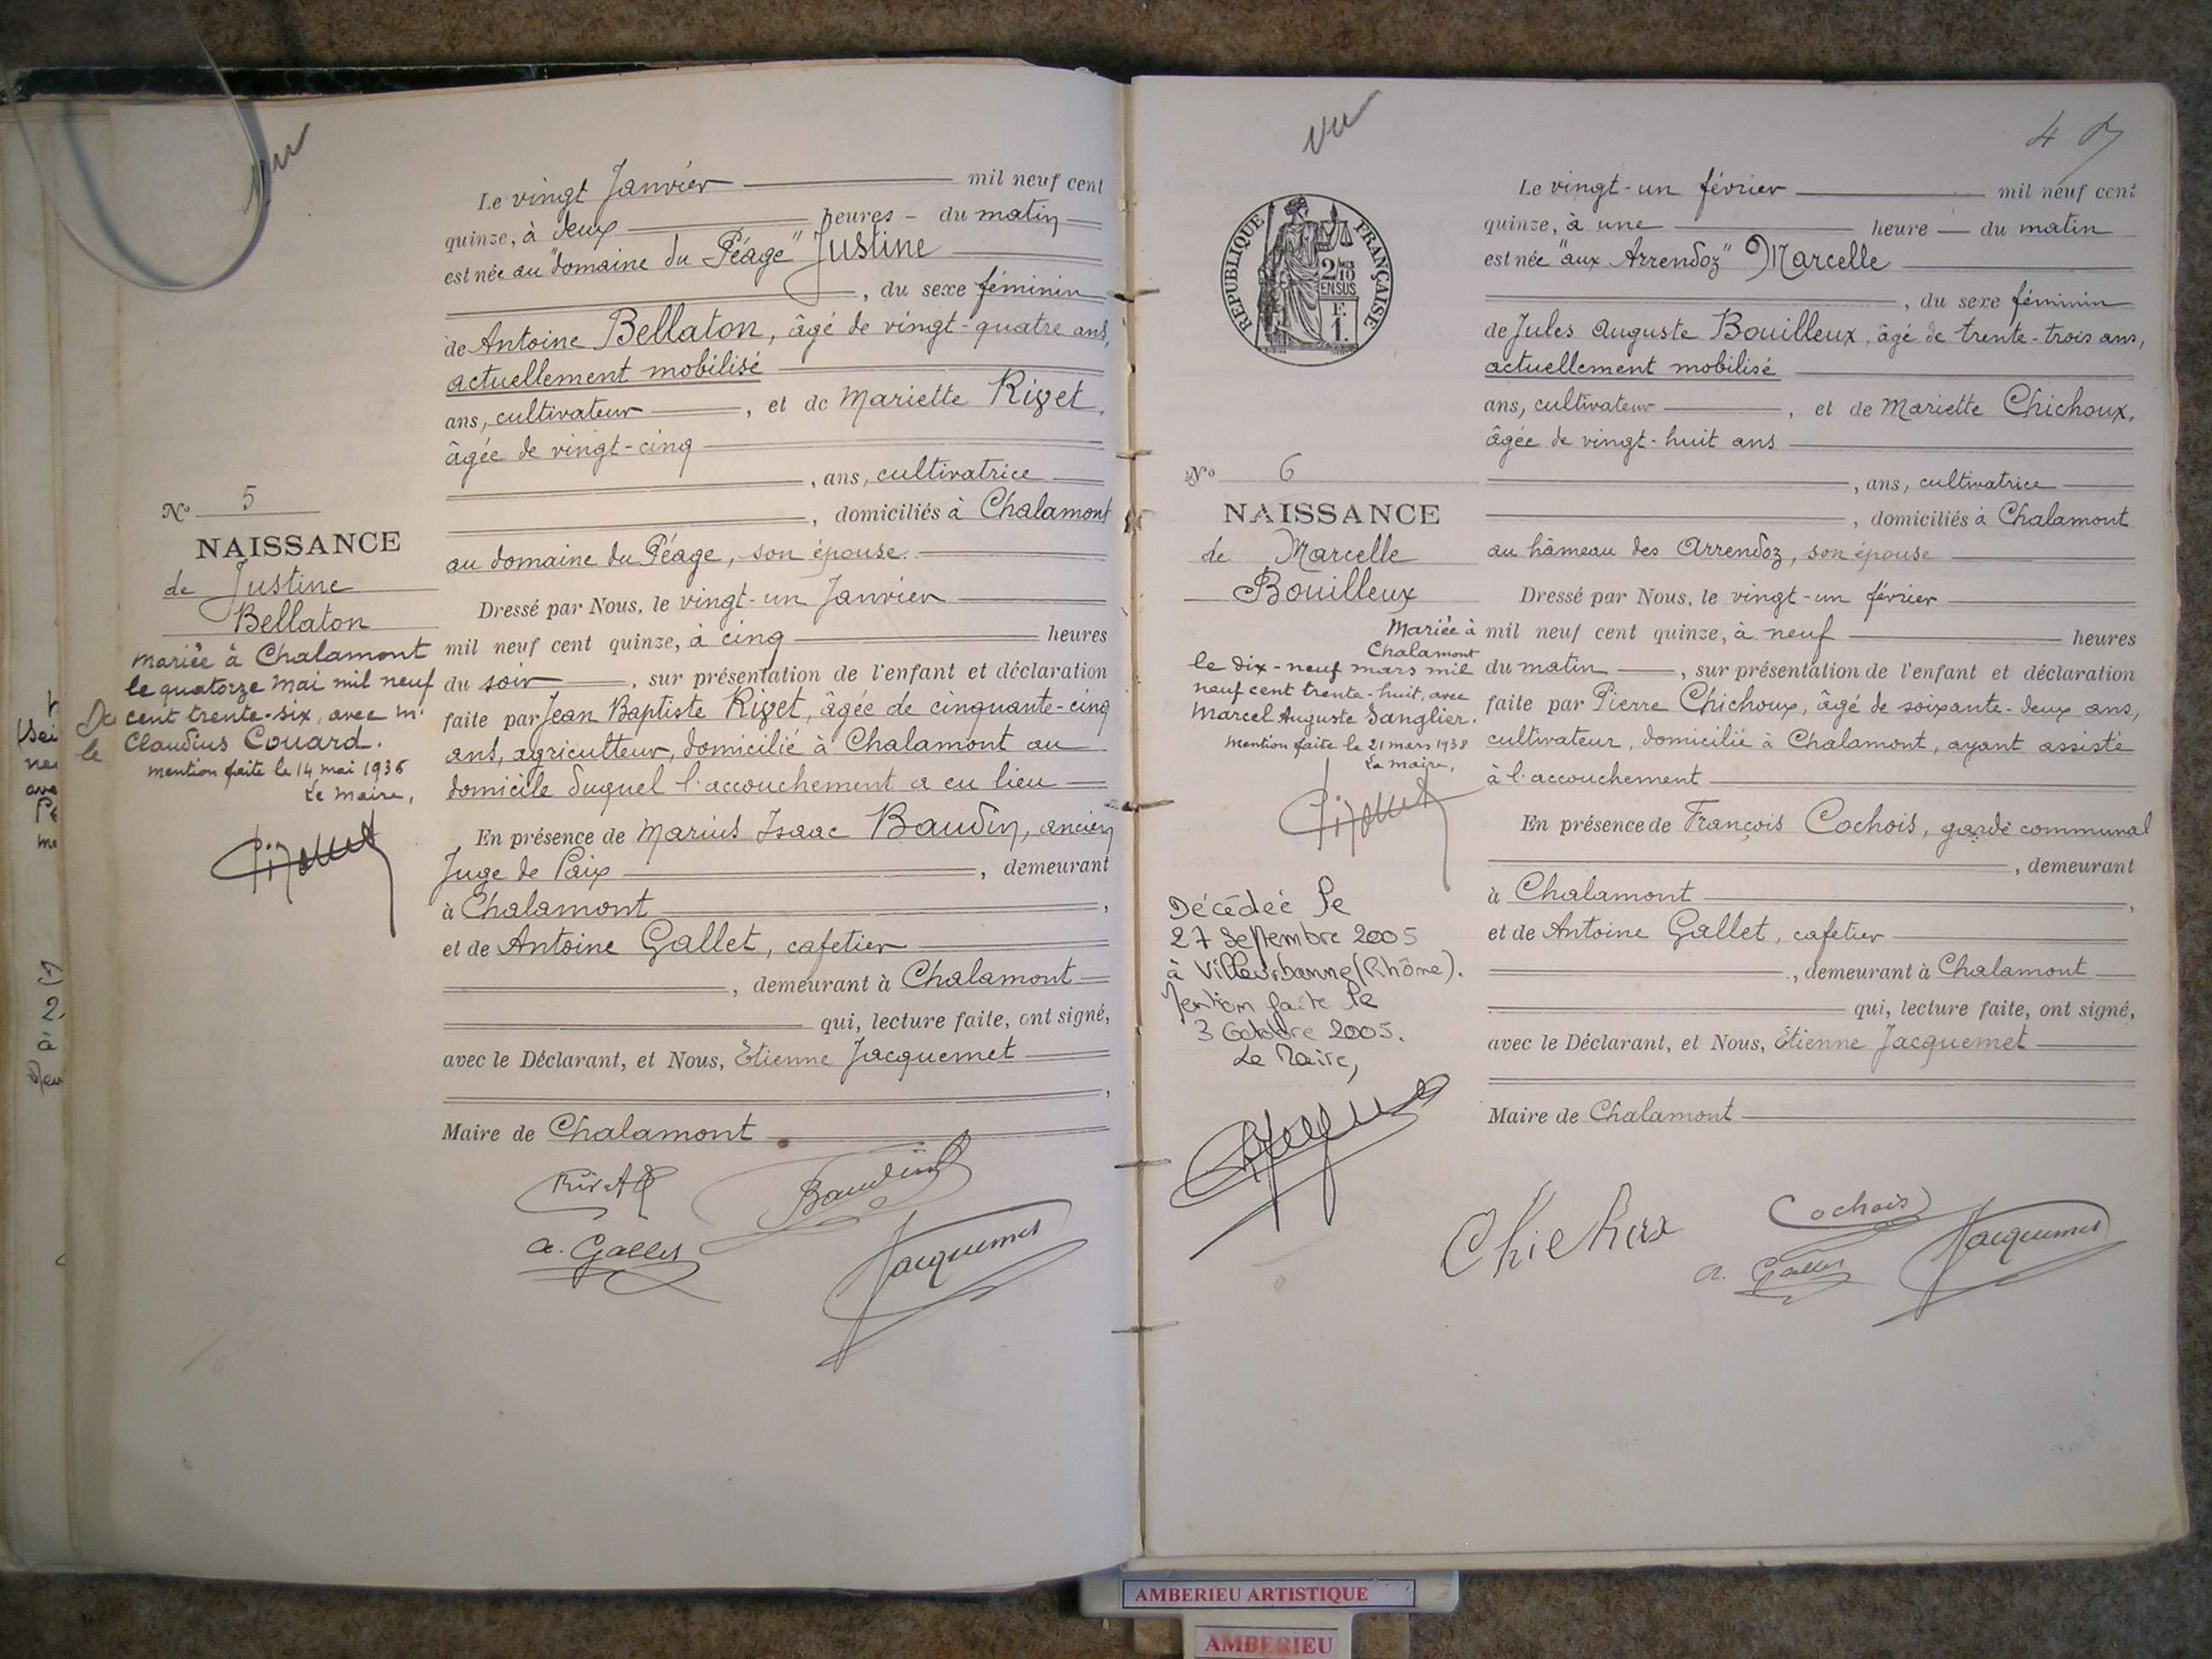 vu
Le vingt Janvier mil neuf cent
quinze, à deux heures - du matin
est née au "domaine du Péage" Justine
, du sexe féminin
de Antoine Bellaton, âgé de vingt-quatre ans,
actuellement mobilisé
ans, cultivateur , et de Mariette Rivet,
âgée de vingt-cinq
, ans, cultivatrice
, domiciliés à Chalamont
au domaine du Péage, son épouse.
Dressé par Nous, le vingt-un Janvier
mil neuf cent quinze, à cinq heures
du soir , sur présentation de l'enfant et déclaration
faite par Jean Baptiste Rivet, âgée de cinquante-cinq
ans, agriculteur, domicilié à Chalamont au
domicile duquel l'accouchement a eu lieu
En présence de Marius Isaac Baudin, ancien
Juge de Paix , demeurant
à Chalamont ,
et de Antoine Gallet, cafetier
, demeurant à Chalamont
qui, lecture faite, ont signé,
avec le Déclarant, et Nous, Etienne Jacquemet
,
Maire de Chalamont
Rivet
Baudin
a. Gallet
Jacquemet
No 5
NAISSANCE
de Justine
Bellaton
Mariée à Chalamont
le quatorze Mai mil neuf
cent trente-six, avec M.
Claudius Couard.
Mention faite le 14 mai 1936
Le Maire,
De
le
vu
4
RÉPUBLIQUE FRANÇAISE
2/10
EN SUS
F.
1.
Le vingt-un février mil neuf cent
quinze, à une heure — du matin
est née "aux Arrendoz" Marcelle
, du sexe féminin
de Jules Auguste Bouilleux, âgé de trente-trois ans,
actuellement mobilisé
ans, cultivateur , et de Mariette Chichoux,
âgée de vingt-huit ans
, ans, cultivatrice
, domiciliés à Chalamont
au hâmeau des Arrendoz, son épouse
Dressé par Nous, le vingt-un février
mil neuf cent quinze, à neuf heures
du matin , sur présentation de l'enfant et déclaration
faite par Pierre Chichoux, âgé de soixante-deux ans,
cultivateur, domicilié à Chalamont, ayant assisté
à l'accouchement
En présence de François Cochois, garde communal
, demeurant
à Chalamont ,
et de Antoine Gallet, cafetier
, demeurant à Chalamont
qui, lecture faite, ont signé,
avec le Déclarant, et Nous, Etienne Jacquemet
Maire de Chalamont
Chichoux
Cochois
a. Gallet
Jacquemet
No 6
NAISSANCE
de Marcelle
Bouilleux
Mariée à
Chalamont
le dix-neuf mars mil
neuf cent trente-huit, avec
Marcel Auguste Sanglier.
Mention faite le 21 mars 1938
Le Maire,
Décédée le
27 Septembre 2005
à Villeurbanne (Rhône).
Mention faite le
3 Octobre 2005.
Le Maire,
AMBERIEU ARTISTIQUE
AMBERIEU